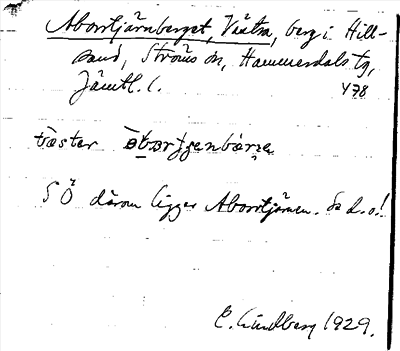 Aborrtjärnberget, Västra, berg i Hill-
sand, Ströms sn, Hammerdals tg,
Jämtl. l.
478
väster
SÖ därom ligger Aborrtjärnen. Se d. o!
E. Lindberg 1929.